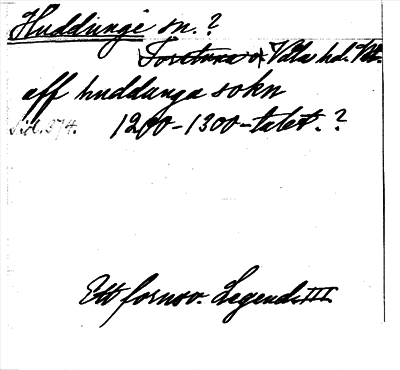 Huddunge sn.?
Torstuna o. Våla hd. Vstm.
aff huddunga sokn
Sid. 374. 1200-1300-talet.?
Ett fornsv. Legend. III.